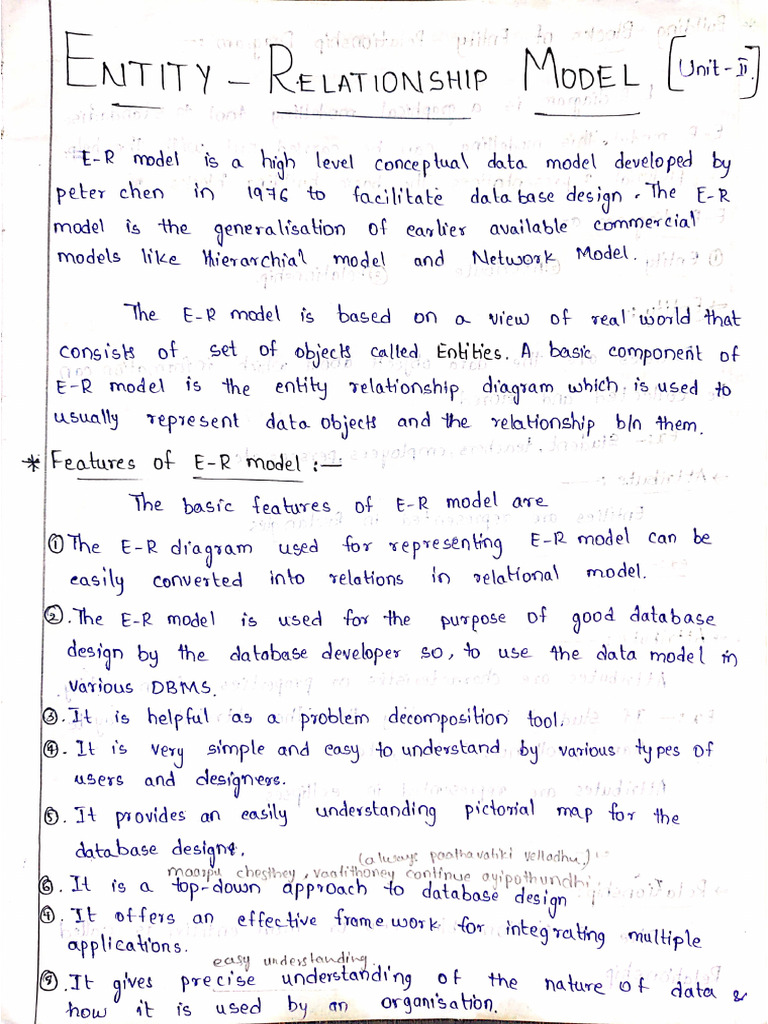 ENTITY – RELATIONSHIP MODEL [Unit-II]
E-R model is a high level conceptual data model developed by
peter chen in 1976 to facilitate database design. The E-R
model is the generalisation of earlier available commercial
models like Hierarchial model and Network Model.
The E-R model is based on a view of real world that
consists of set of objects called Entities. A basic component of
E-R model is the entity relationship diagram which is used to
usually represent data objects and the relationship b/n them.
* Features of E-R model :-
The basic features of E-R model are
① The E-R diagram used for representing E-R model can be
easily converted into relations in relational model.
②. The E-R model is used for the purpose of good database
design by the database developer so, to use the data model in
various DBMS.
③. It is helpful as a problem decomposition tool.
④. It is very simple and easy to understand by various types of
users and designers.
⑤. It provides an easily understanding pictorial map for the
database design.
(always paathavatiki velladhu)
maarpu chesthey, vaatithoney continue ayipothundhi
⑥. It is a top-down approach to database design
⑦. It offers an effective frame work for integrating multiple
applications.
easy understanding
⑧. It gives precise understanding of the nature of data &
how it is used by an organisation.